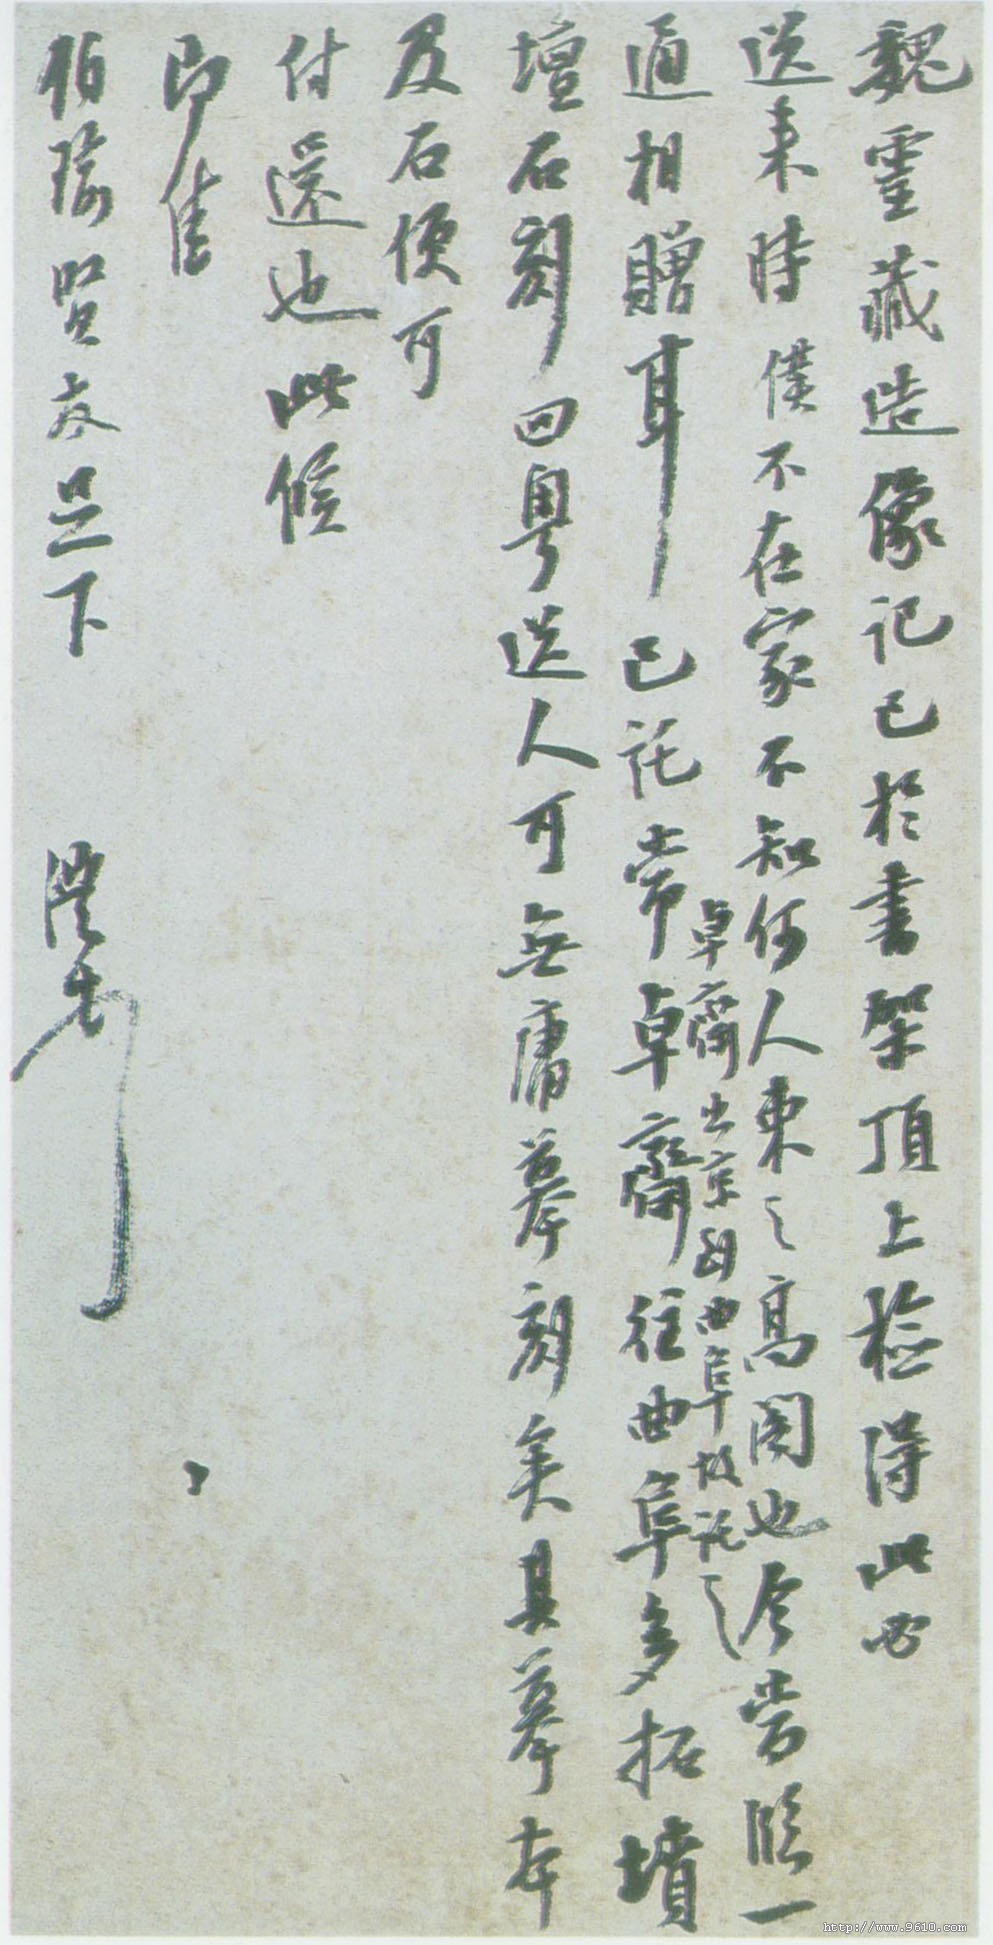 魏靈藏造像記已於書架頂上檢得此必
送來時僕不在家不知何人束之高閣也今嘗臨一
通相贈耳已託常卓齋往曲阜多拓墳
卓齋出京到曲阜故託之
壇石刻回粵送人可無庸摹刻矣其摹本
及石便可
付還也此候
即佳
伯瑜賢友足下
澧
http://www.9610.com